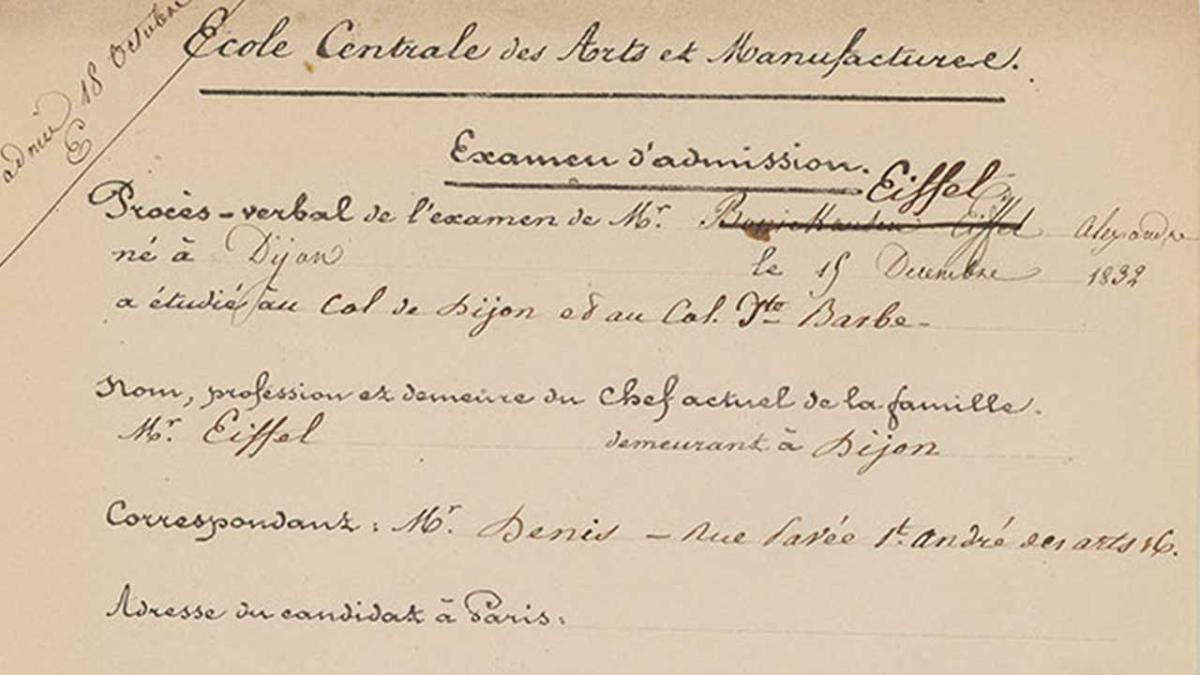 admis 18 Octobre
E
Ecole Centrale des Arts et Manufactures.
Examen d'admission.
Eiffel
Procès-verbal de l'examen de Mr. Bonickausen Eiffel Alexandre
né à Dijon le 15 Decembre 1832
a étudié au Col de Dijon et au Col. Ste Barbe-
Nom, profession et demeure du Chef actuel de la famille.
Mr. Eiffel demeurant à Dijon
Correspondant : Mr. Denis - Rue Pavée St. André des arts 16.
Adresse du candidat à Paris :